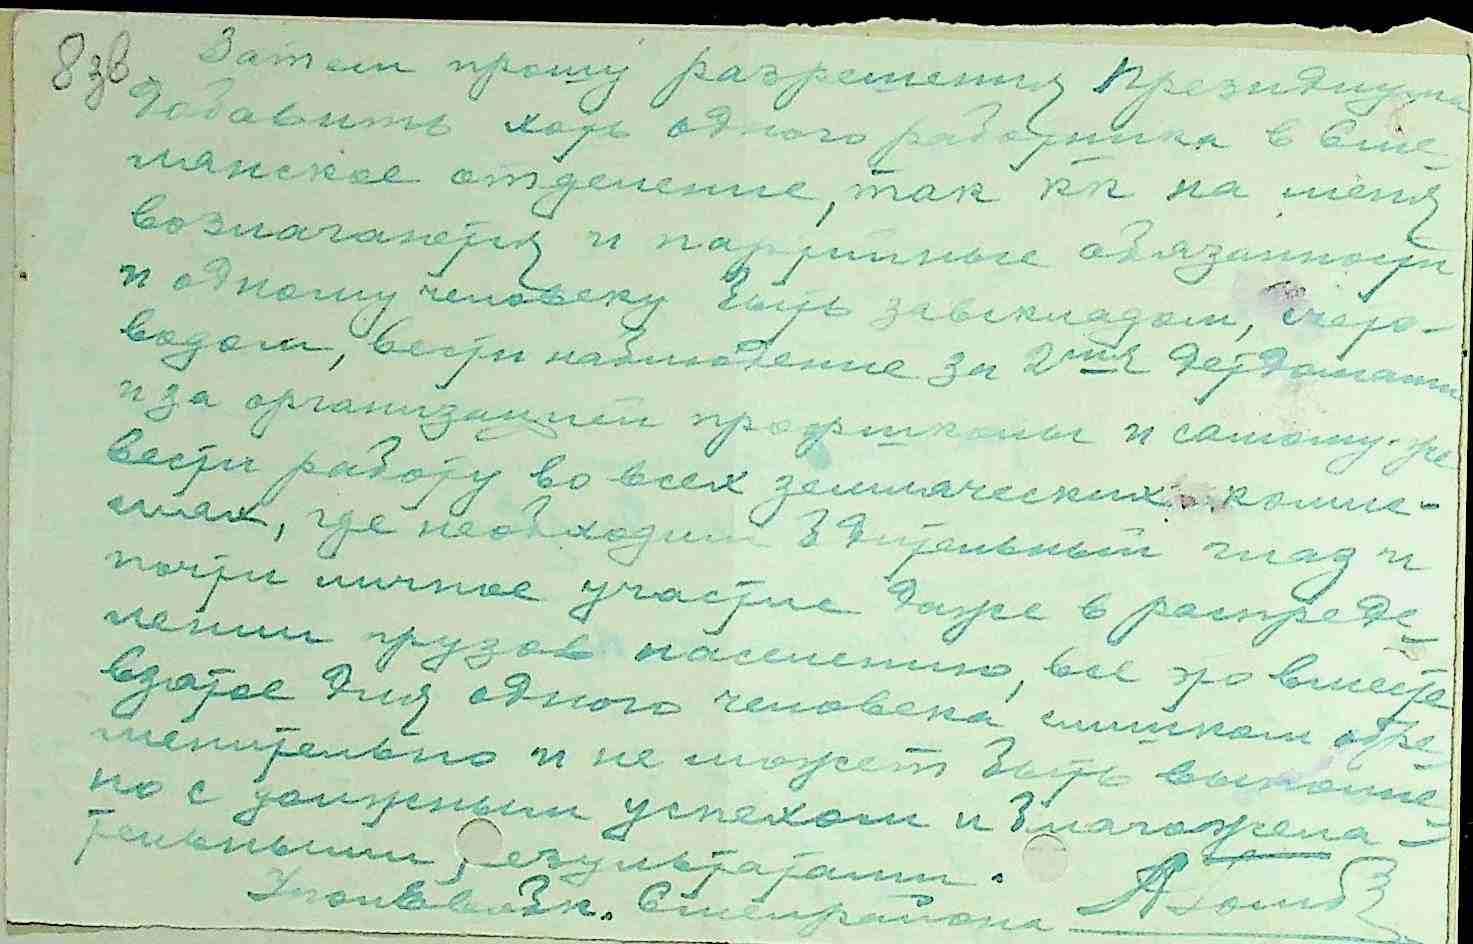 8 зв
Затем прошу разрешения Президиума
добавить хоть одного работника в Сме-
лянское отделение, так кк на меня
возлагаются и партийные обязанности
и одному человеку быть завскладом, счето-
водом, вести наблюдение за 2мя детдомами
и за организацией профшколы и самому же
вести работу во всех земляческих комис-
сиях, где необходим бдительный глаз и
почти личное участие даже в распреде-
лении грузов населению, все это вместе
взятое для одного человека слишком обре-
менительно и не может быть выполне-
но с должным успехом и благожела-
тельными результатами.
Смелрайона